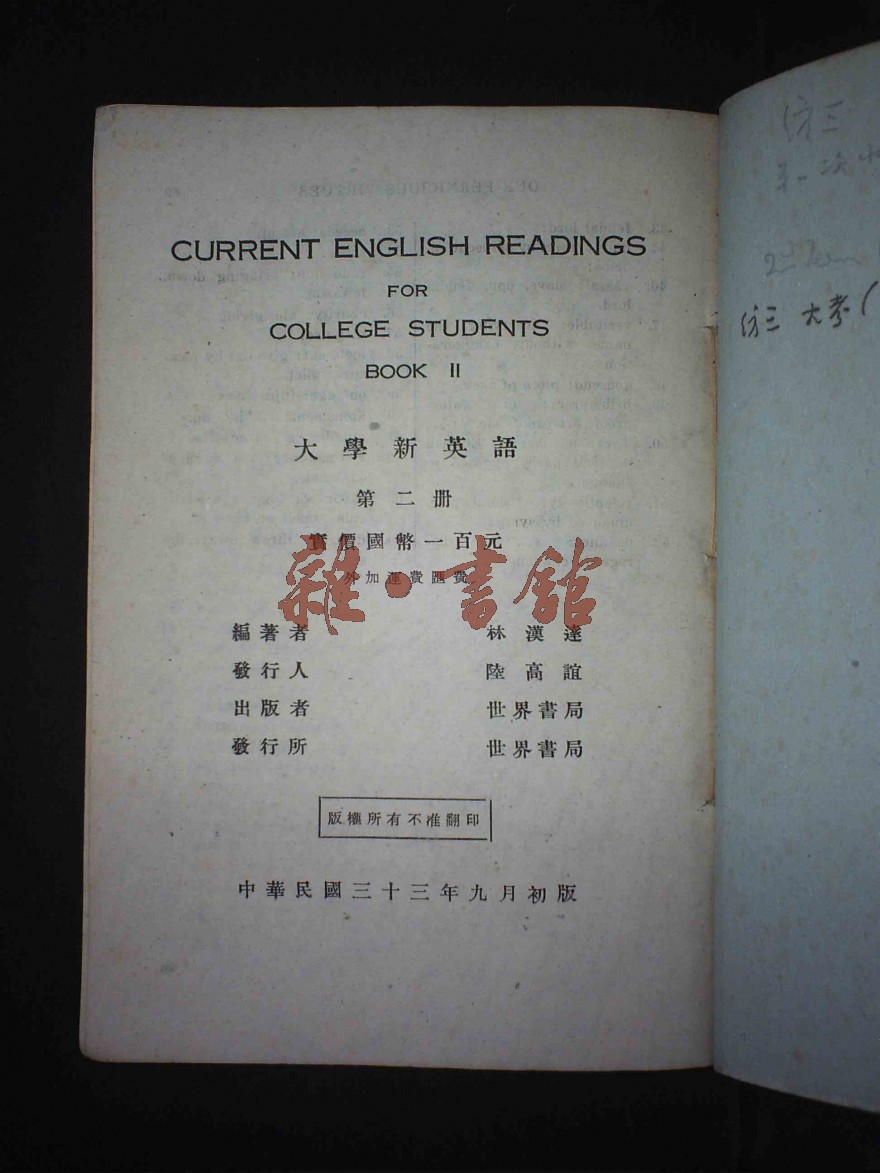 CURRENT ENGLISH READINGS
FOR
COLLEGE STUDENTS
BOOK II
大學新英語
第二册
實價國幣一百元
外加運費匯費
雜·書館
編著者 林漢達
發行人 陸高誼
出版者 世界書局
發行所 世界書局
版權所有不准翻印
中華民國三十三年九月初版
大考